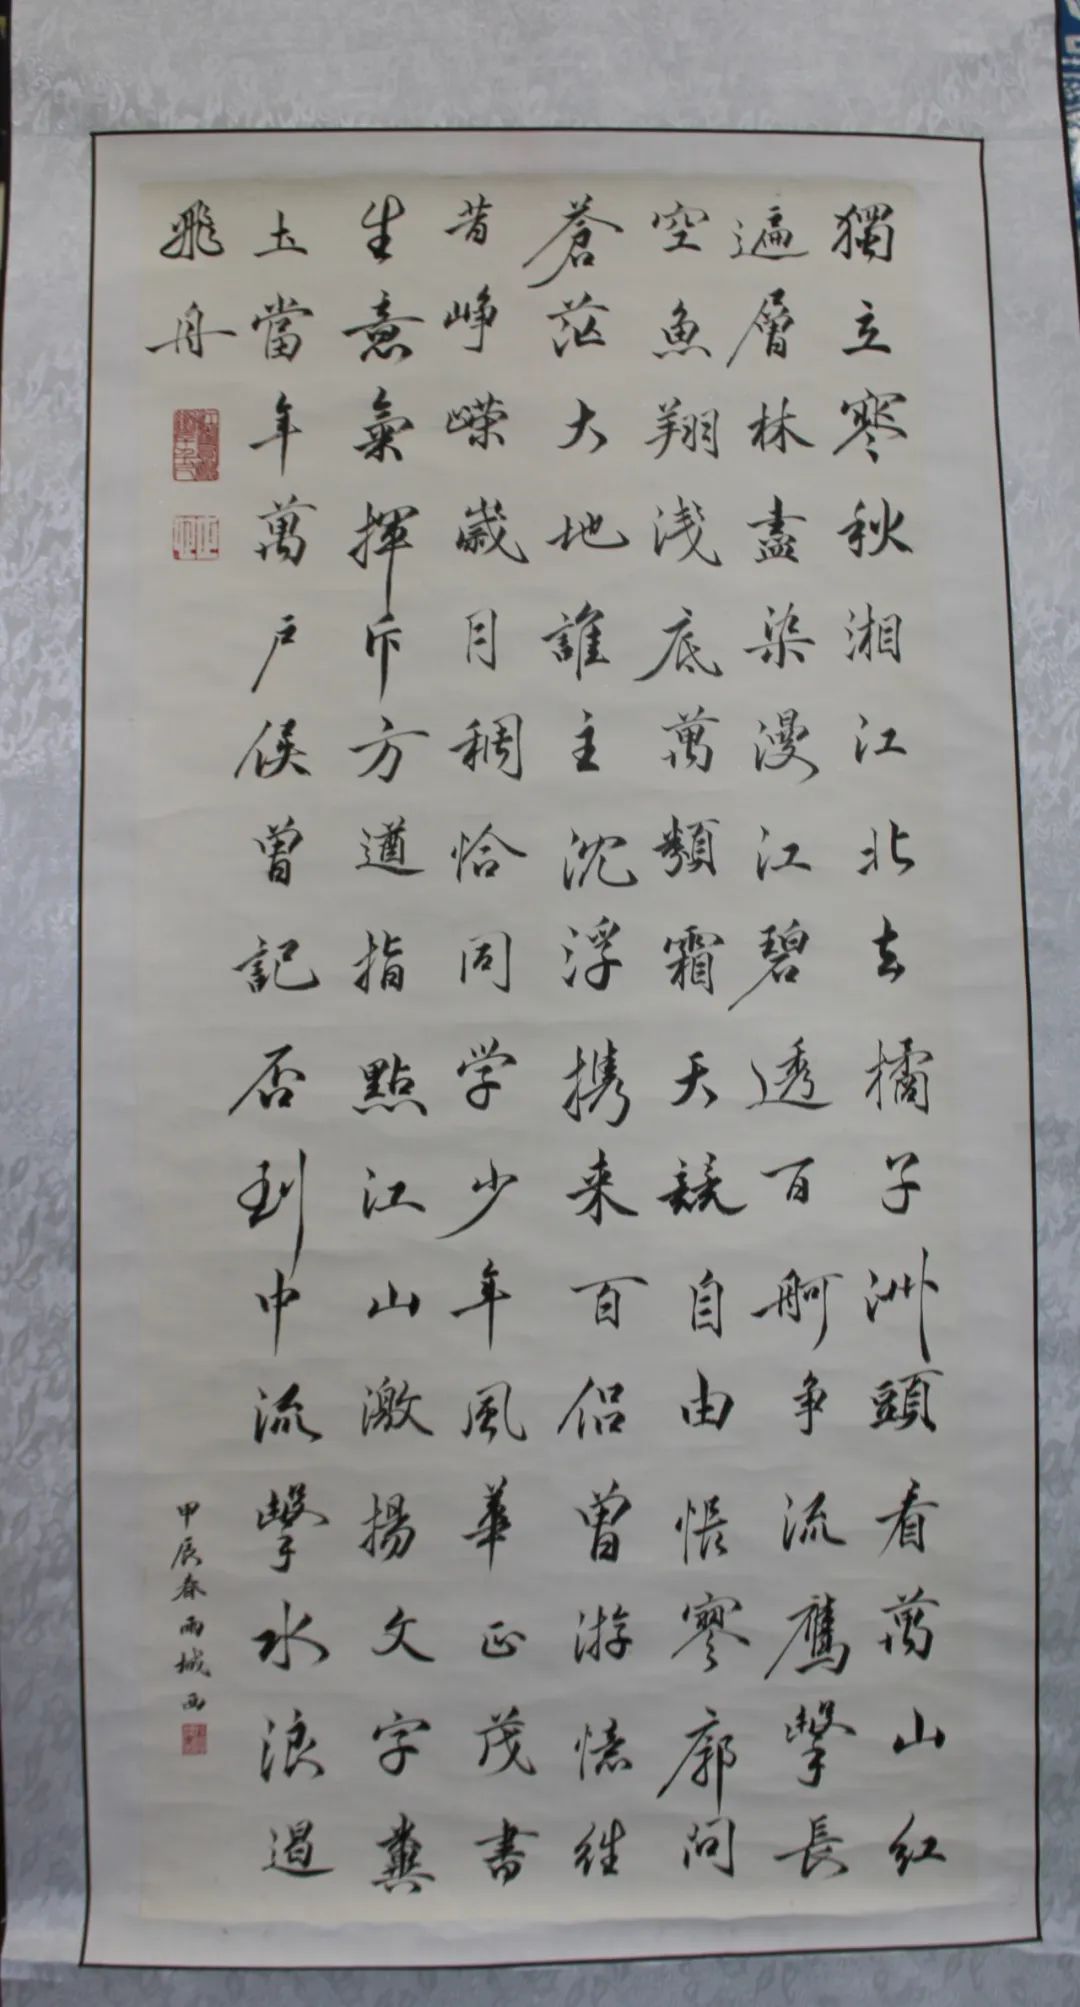 獨立寒秋湘江北去橘子洲頭看萬山紅
遍層林盡染漫江碧透百舸争流鷹擊長
空魚翔淺底萬類霜天競自由悵寥廓問
蒼茫大地誰主沈浮携来百侣曾游憶往
昔峥嶸歲月稠恰同学少年風華正茂書
生意氣揮斥方遒指點江山激揚文字糞
土當年萬户侯曾記否到中流擊水浪遏
飛舟
甲辰春雨城